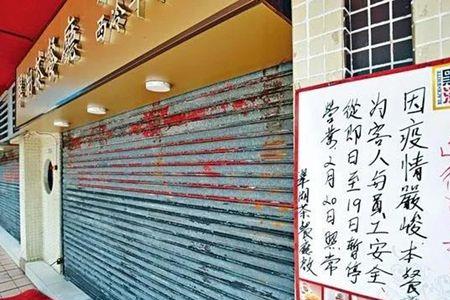 茶餐廳
因疫情嚴峻本餐
为客人与員工安全、
從即日至19日暫停
營業2月20日照常
翠湖茶餐廳啟